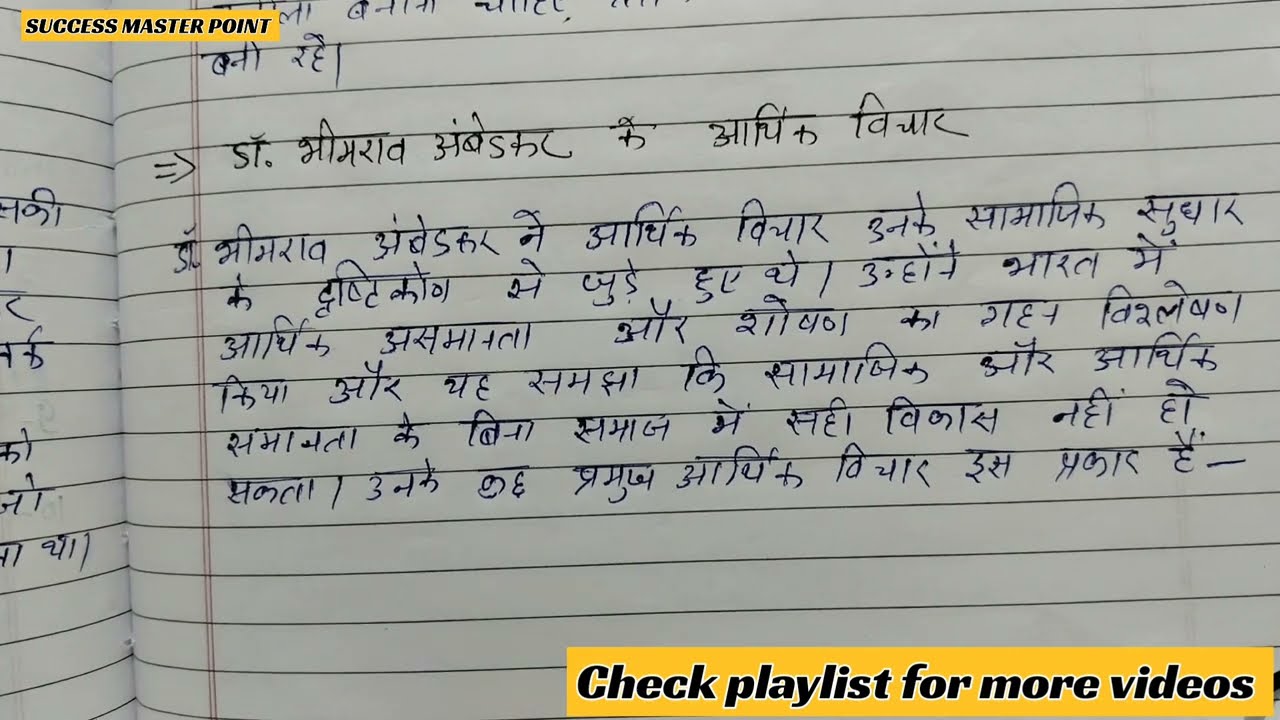 SUCCESS MASTER POINT
बनाना चाहिए
बनी रहे।
=> डॉ. भीमराव अंबेडकर के आर्थिक विचार
डॉ. भीमराव अंबेडकर ने आर्थिक विचार उनके सामाजिक सुधार
के दृष्टिकोण से जुड़े हुए थे। उन्होंने भारत में
आर्थिक असमानता और शोषण का गहन विश्लेषण
किया और यह समझा कि सामाजिक और आर्थिक
समानता के बिना समाज में सही विकास नहीं हो
सकता। उनके कुछ प्रमुख आर्थिक विचार इस प्रकार हैं-
को
था।
Check playlist for more videos